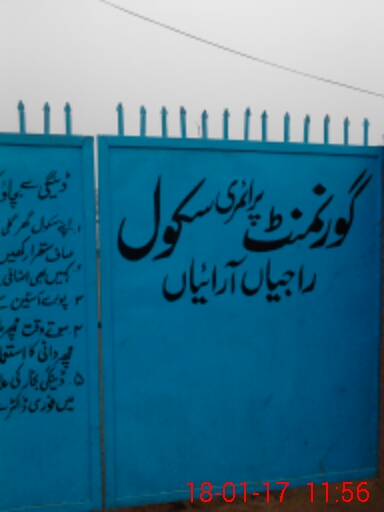 گورنمنٹ پرائمری سکول
راجیاں آرائیاں
ڈینگی سے بچاؤ
۱. اپنے سکول گھر گلی
صاف ستھرا رکھیں
کہیں بھی اضافی
۳ پورے آستین کے
۴ سوتے وقت مچھر
مچھر دانی کا استعمال
۵. ڈینگی بخار کی
میں فوری ڈاکٹر سے
18-01-17 11:56